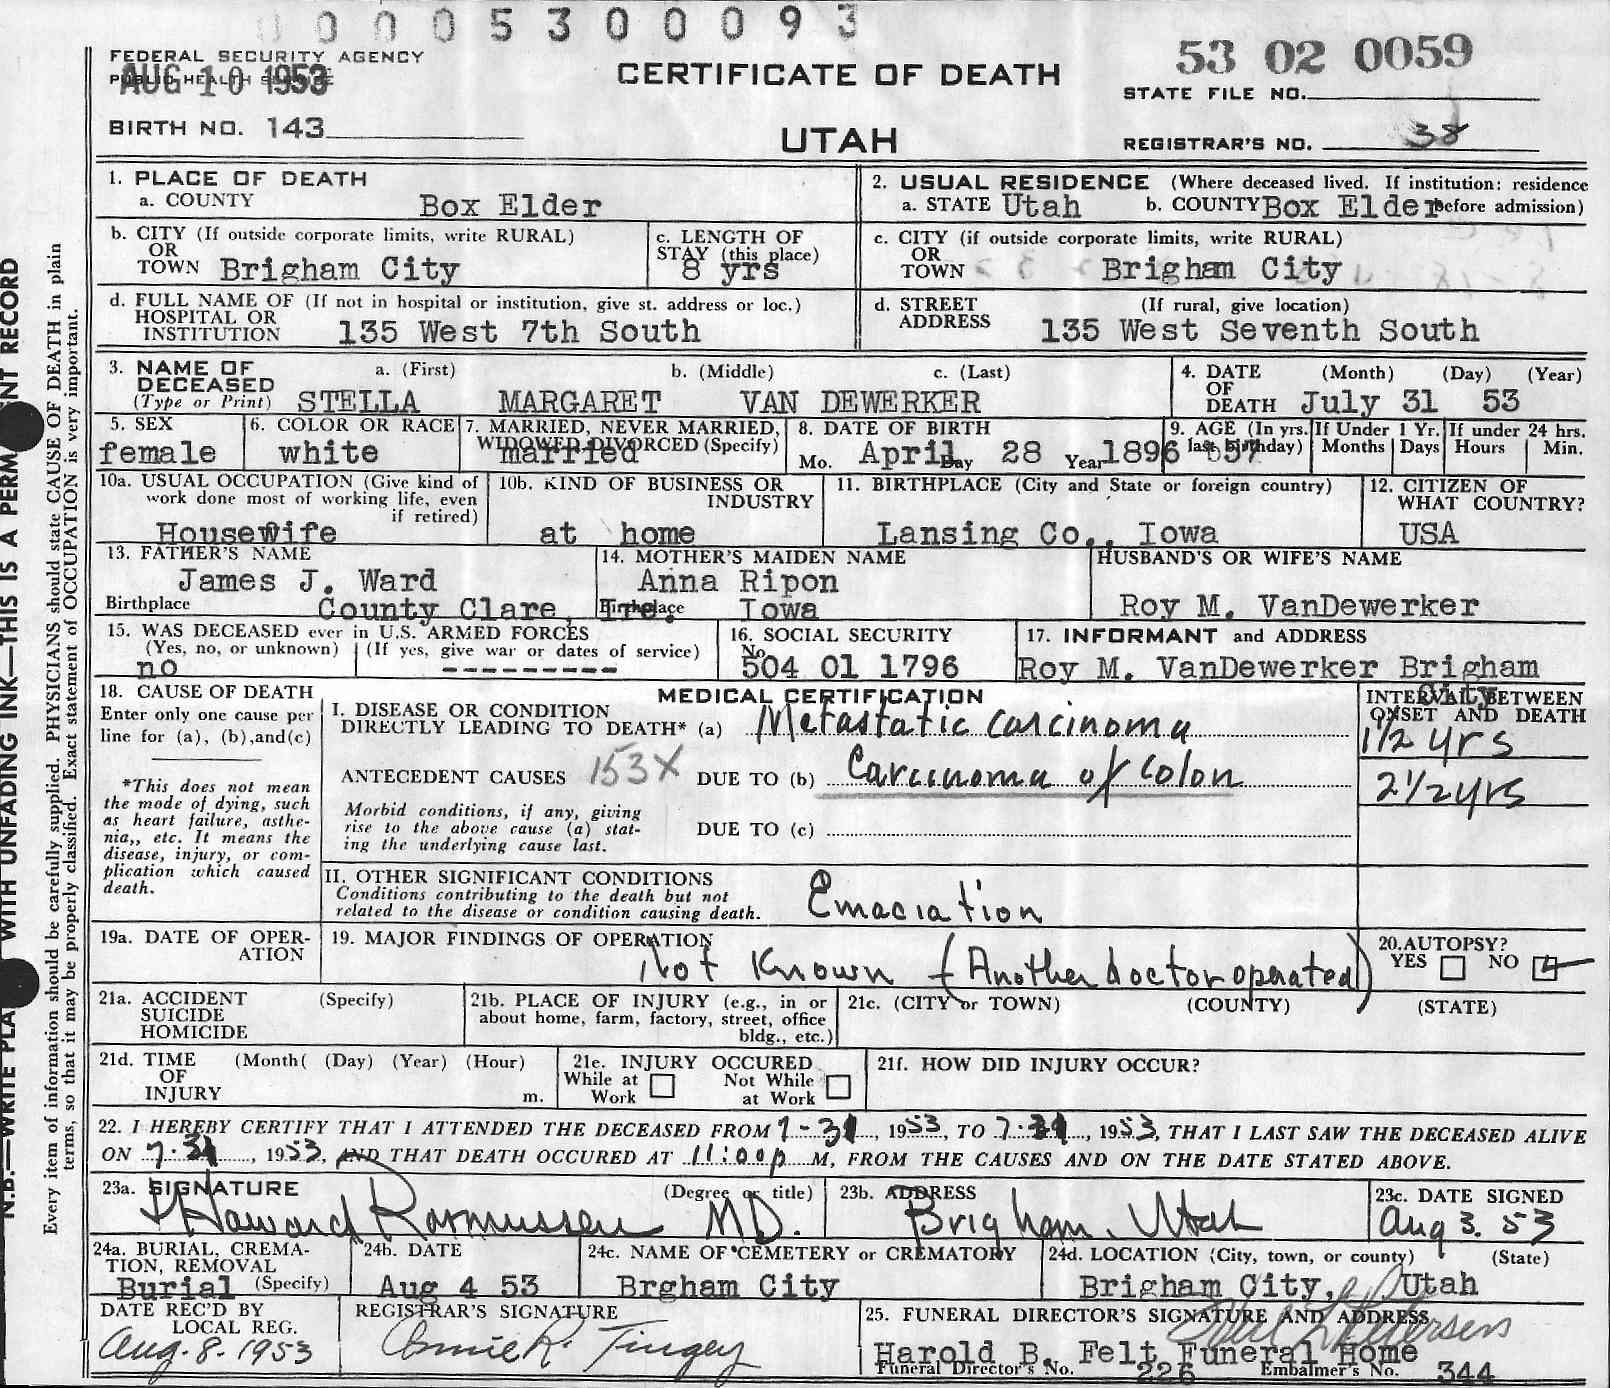 0 0 0 5 3 0 0 0 9 3
FEDERAL SECURITY AGENCY
PUBLIC HEALTH SERVICE
AUG 10 1953
CERTIFICATE OF DEATH
53 02 0059
STATE FILE NO.
BIRTH NO. 143
UTAH
REGISTRAR'S NO. 38
1. PLACE OF DEATH
a. COUNTY Box Elder
2. USUAL RESIDENCE (Where deceased lived. If institution: residence
a. STATE Utah b. COUNTY Box Elder before admission)
b. CITY (If outside corporate limits, write RURAL)
OR
TOWN Brigham City
c. LENGTH OF
STAY (this place)
8 yrs
c. CITY (if outside corporate limits, write RURAL)
OR
TOWN Brigham City
d. FULL NAME OF (If not in hospital or institution, give st. address or loc.)
HOSPITAL OR
INSTITUTION 135 West 7th South
d. STREET (If rural, give location)
ADDRESS 135 West Seventh South
3. NAME OF a. (First) b. (Middle) c. (Last)
DECEASED
(Type or Print) STELLA MARGARET VAN DEWERKER
4. DATE (Month) (Day) (Year)
OF
DEATH July 31 53
5. SEX
female
6. COLOR OR RACE
white
7. MARRIED, NEVER MARRIED,
WIDOWED DIVORCED (Specify)
married
8. DATE OF BIRTH
Mo. April Day 28 Year 1896
9. AGE (In yrs.
last birthday) 57
If Under 1 Yr.
Months Days
If under 24 hrs.
Hours Min.
10a. USUAL OCCUPATION (Give kind of
work done most of working life, even
if retired)
Housewife
10b. KIND OF BUSINESS OR
INDUSTRY
at home
11. BIRTHPLACE (City and State or foreign country)
Lansing Co., Iowa
12. CITIZEN OF
WHAT COUNTRY?
USA
13. FATHER'S NAME
James J. Ward
Birthplace County Clare, Ire.
14. MOTHER'S MAIDEN NAME
Anna Ripon
Birthplace Iowa
HUSBAND'S OR WIFE'S NAME
Roy M. VanDewerker
15. WAS DECEASED ever in U.S. ARMED FORCES
(Yes, no, or unknown) (If yes, give war or dates of service)
no ---------
16. SOCIAL SECURITY
No.
504 01 1796
17. INFORMANT and ADDRESS
Roy M. VanDewerker Brigham
City
18. CAUSE OF DEATH
Enter only one cause per
line for (a), (b),and(c)
*This does not mean
the mode of dying, such
as heart failure, asthe-
nia,, etc. It means the
disease, injury, or com-
plication which caused
death.
MEDICAL CERTIFICATION
I. DISEASE OR CONDITION
DIRECTLY LEADING TO DEATH* (a) Metastatic carcinoma
ANTECEDENT CAUSES 153X DUE TO (b) Carcinoma of Colon
Morbid conditions, if any, giving
rise to the above cause (a) stat-
ing the underlying cause last.
DUE TO (c)
INTERVAL BETWEEN
ONSET AND DEATH
1 1/2 yrs
2 1/2 yrs
II. OTHER SIGNIFICANT CONDITIONS
Conditions contributing to the death but not
related to the disease or condition causing death.
Emaciation
19a. DATE OF OPER-
ATION
19. MAJOR FINDINGS OF OPERATION
Not Known (Another doctor operated)
20.AUTOPSY?
YES NO
21a. ACCIDENT (Specify)
SUICIDE
HOMICIDE
21b. PLACE OF INJURY (e.g., in or
about home, farm, factory, street, office
bldg., etc.)
21c. (CITY or TOWN) (COUNTY) (STATE)
21d. TIME (Month( (Day) (Year) (Hour)
OF
INJURY m.
21e. INJURY OCCURED
While at Work Not While at Work
21f. HOW DID INJURY OCCUR?
22. I HEREBY CERTIFY THAT I ATTENDED THE DECEASED FROM 7-31, 1953, TO 7-31, 1953, THAT I LAST SAW THE DECEASED ALIVE
ON 7-31, 1953, AND THAT DEATH OCCURED AT 11:00p M, FROM THE CAUSES AND ON THE DATE STATED ABOVE.
23a. SIGNATURE (Degree or title)
Howard Rasmussen MD.
23b. ADDRESS
Brigham, Utah
23c. DATE SIGNED
Aug 3. 53
24a. BURIAL, CREMA-
TION, REMOVAL
Burial (Specify)
24b. DATE
Aug 4 53
24c. NAME OF CEMETERY or CREMATORY
Brgham City
24d. LOCATION (City, town, or county) (State)
Brigham City, Utah
DATE REC'D BY
LOCAL REG.
Aug. 8. 1953
REGISTRAR'S SIGNATURE
Annie R. Tingey
25. FUNERAL DIRECTOR'S SIGNATURE AND ADDRESS
Harold B. Felt Funeral Home
Funeral Director's No. 226 Embalmer's No. 344
Every item of information should be carefully supplied. PHYSICIANS should state CAUSE OF DEATH in plain
terms, so that it may be properly classified. Exact statement of OCCUPATION is very important.